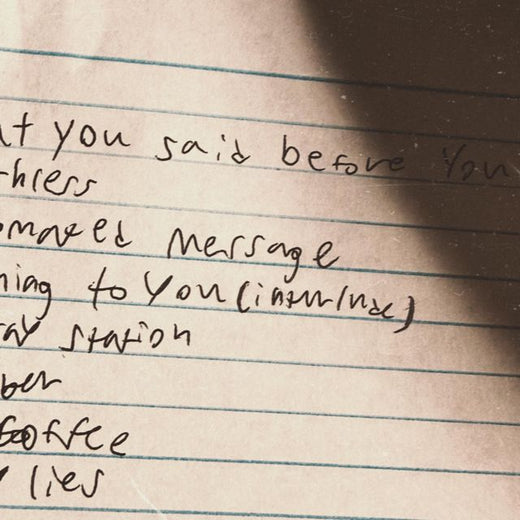 at you said before You
thless
omated Message
ning to You (interlude)
ay station
ber
coffee
lies